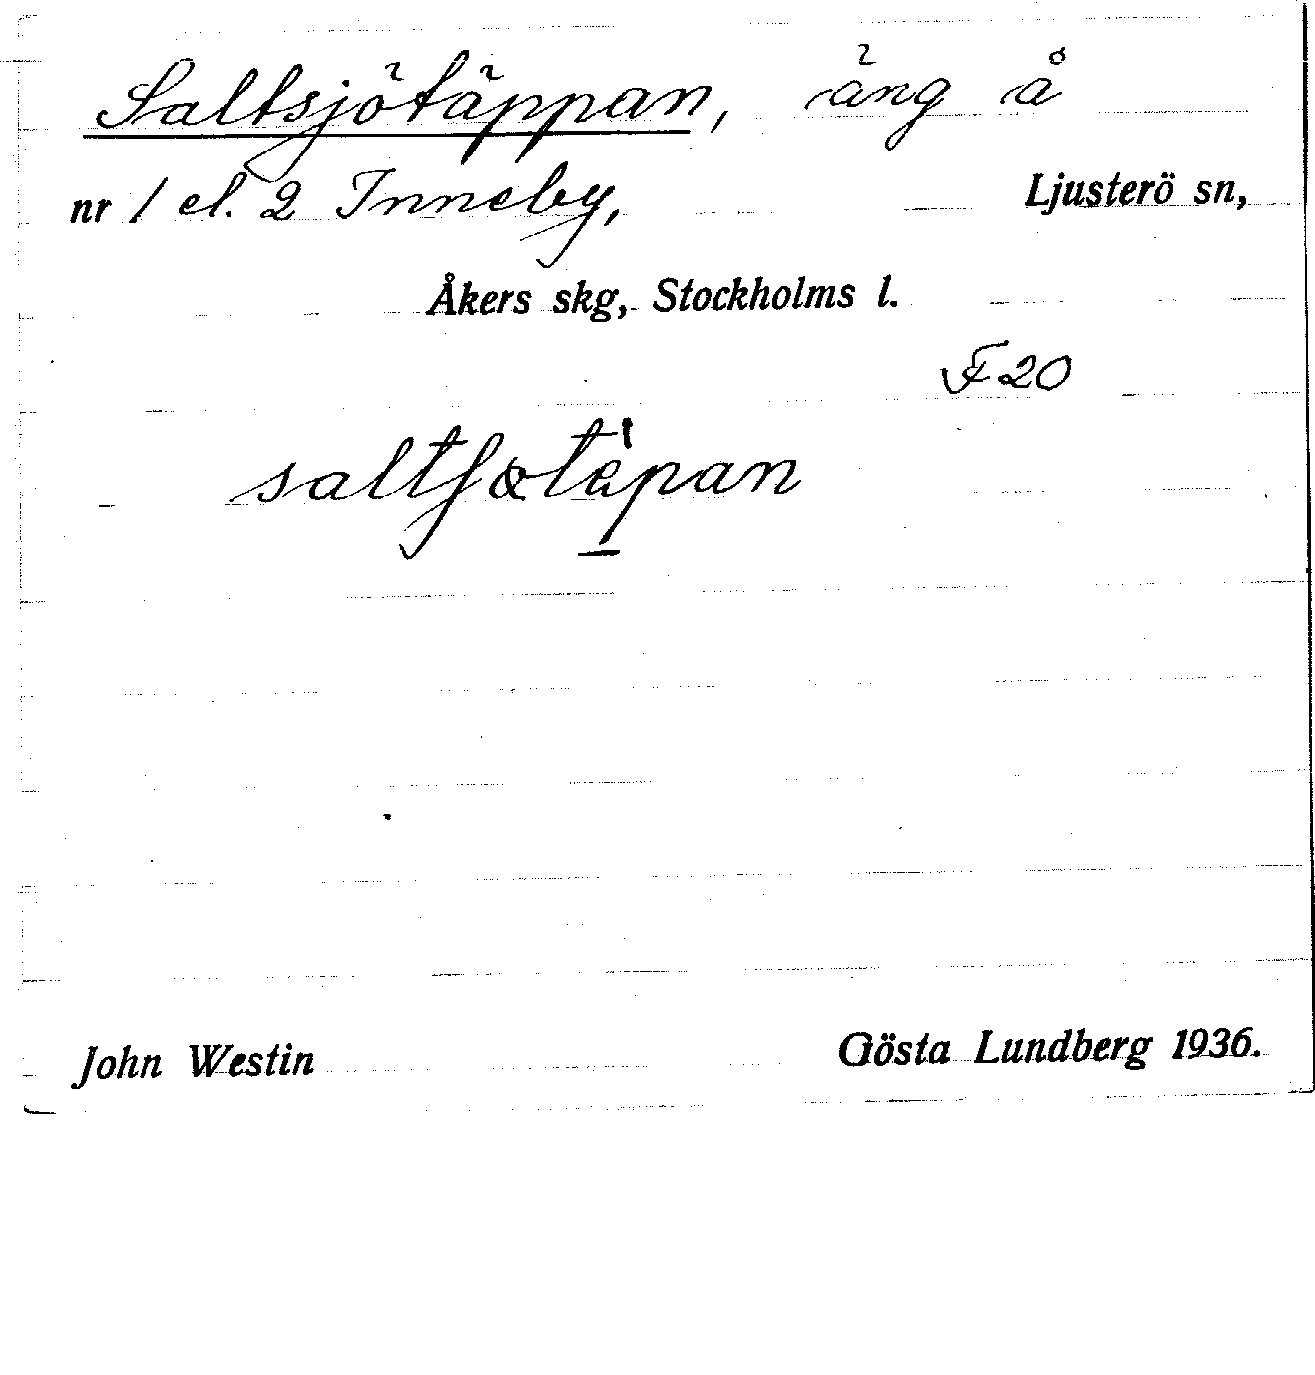 Saltsjötäppan, äng å
nr 1 el. 2 Inneby, Ljusterö sn,
Åkers skg, Stockholms l.
F 20
John Westin Gösta Lundberg 1936.